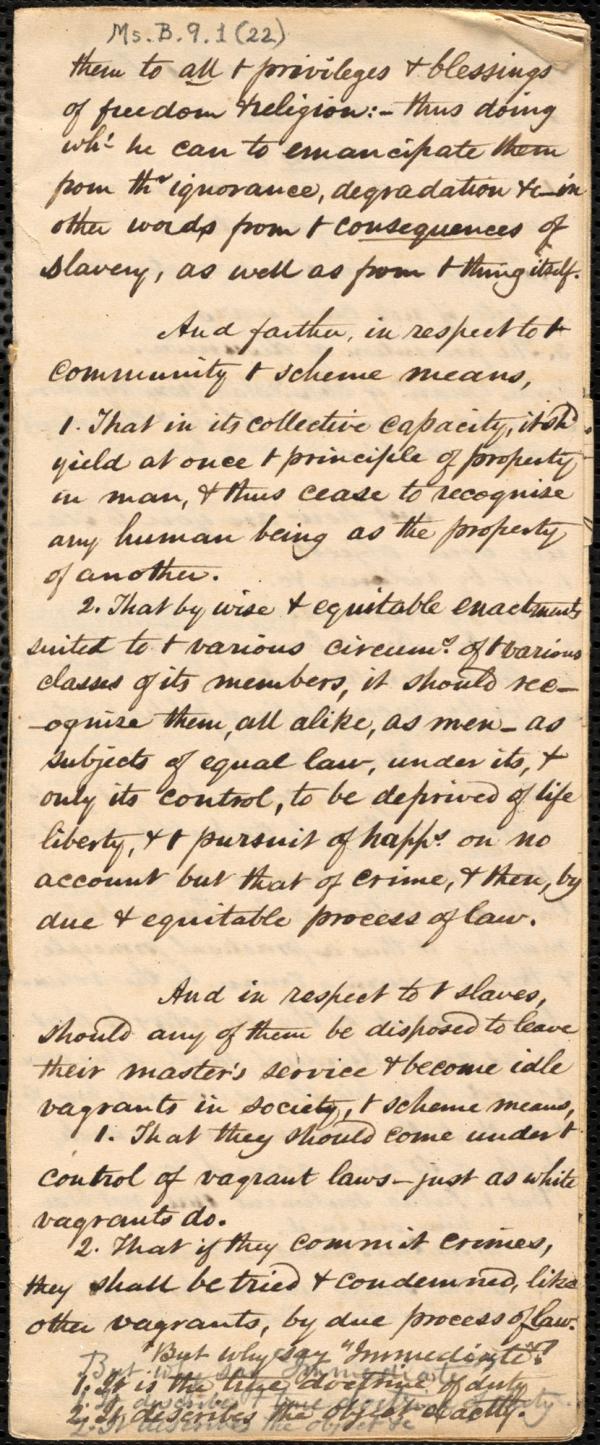 Ms. B. 9. 1 (22)
them to all t privileges & blessings
of freedom & religion:- thus doing
wht he can to emancipate them
from thr ignorance, degradation &c - in
other words from t consequences of
Slavery, as well as from t thing itself.
And farther, in respect to t
community t scheme means,
1. That in its collective capacity, it shd
yield at once t principle of property
in man, & thus cease to recognise
any human being as the property
of another.
2. That by wise & equitable enactments
suited to t various circums. of t various
classes of its members, it should rec-
-ognize them, all alike, as men - as
subjects of equal law, under its, &
only its control, to be deprived of life
liberty, & t pursuit of happs. on no
account but that of crime, & then, by
due & equitable process of law.
And in respect to t slaves,
should any of them be disposed to leave
their master's service & become idle
vagrants in society, t scheme means,
1. That they should come under t
control of vagrant laws - just as white
vagrants do.
2. That if they commit crimes,
they shall be tried & condemned, like
other vagrants, by due process of law.
But why say "Immediate"?
1. It is the true doctrine of duty
2. It describes the object exactly.